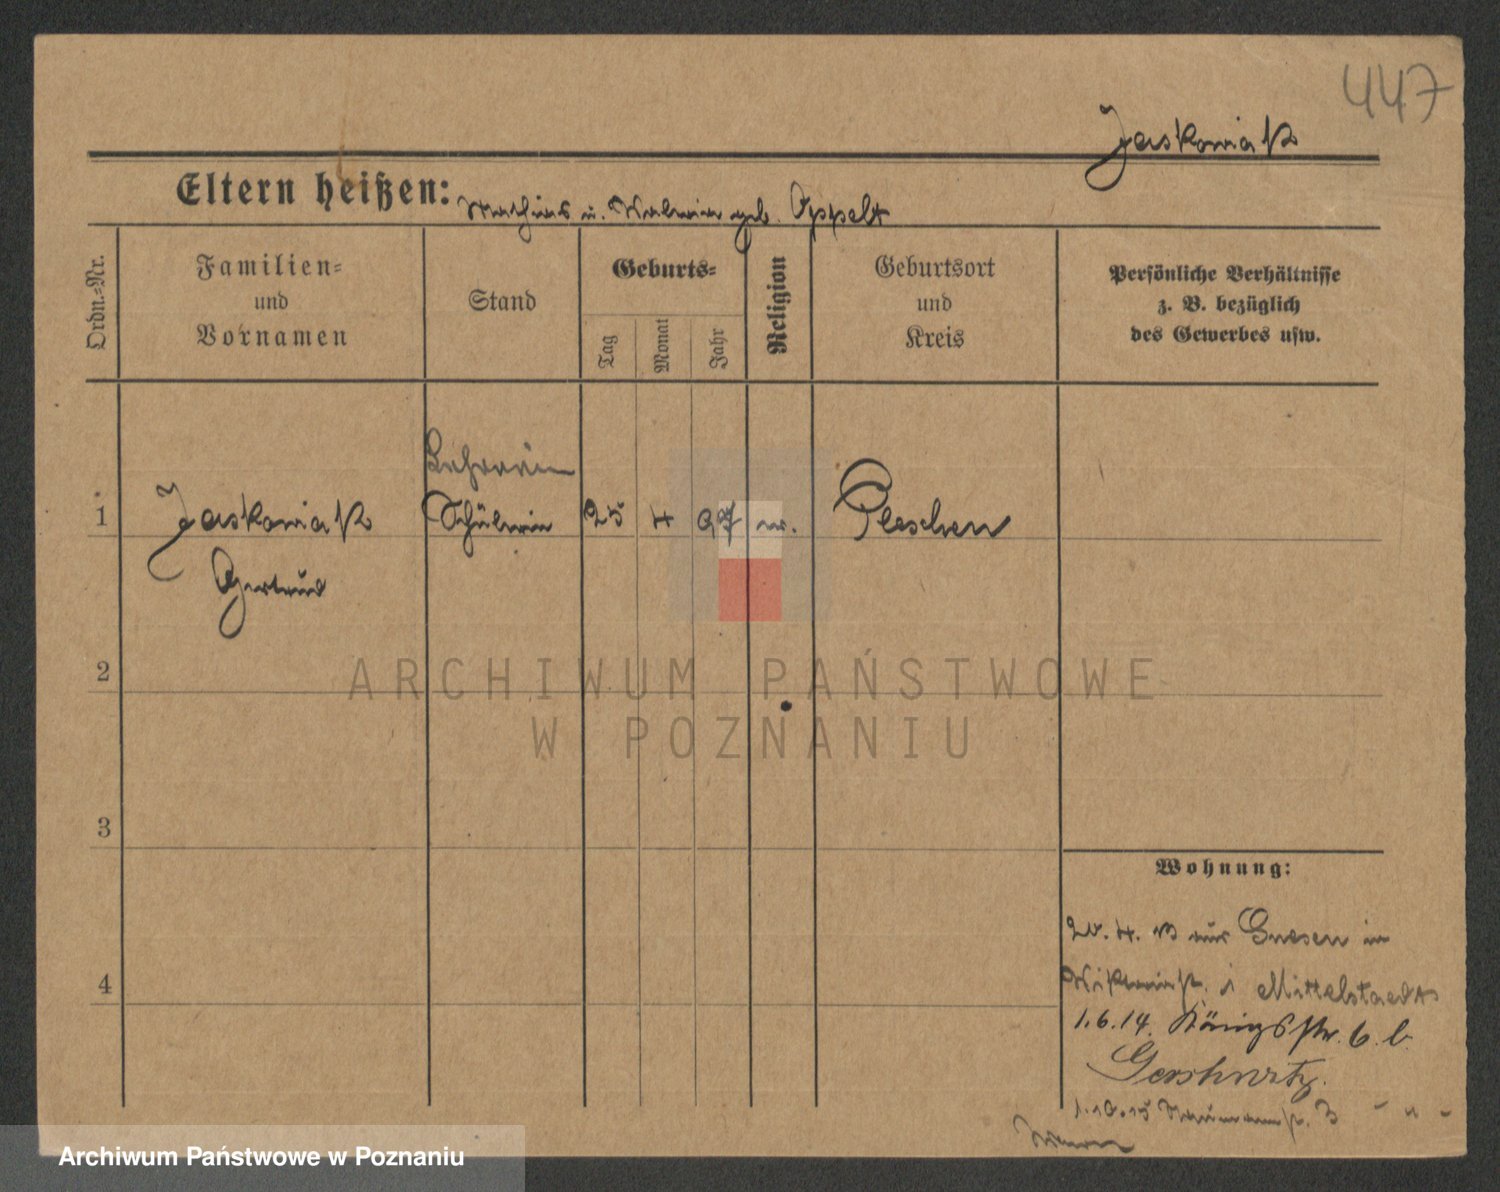 447
Jaskowiak
Eltern heißen: Mathias u. geb. Appelt
Ordn.=Nr.
Familien=
und
Vornamen
Stand
Geburts=
Tag
Monat
Jahr
Religion
Geburtsort
und
Kreis
Persönliche Verhältnisse
z. B. bezüglich
des Gewerbes usw.
Lehrerin
1 Jaskowiak Schülerin 25 4 97 Pleschen
Gertrud
2
3
4
Wohnung:
20. 4. 13 aus Gnesen
Mittelstaedt
1.6.14. Königstr. 6. b.
1.10.15 Naumannstr. 3 - " -
ARCHIWUM PAŃSTWOWE
W POZNANIU
Archiwum Państwowe w Poznaniu